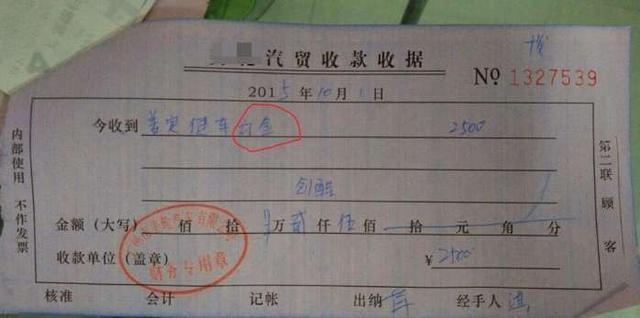 汽贸收款收据
№ 1327539
2015年10月1日
今收到 订金 2500
创酷
金额（大写） 佰 拾 万 贰仟 伍佰 拾 元 角 分
收款单位（盖章） ¥ 2500
财务专用章
核准 会计 记帐 出纳 经手人
内部使用 不作发票
第二联 顾客